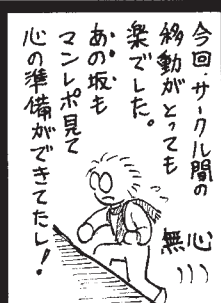 今回、サークル間の
移動がとっても
楽でした。
あの坂も
マンレポ見て
心の準備ができてたし!
無心